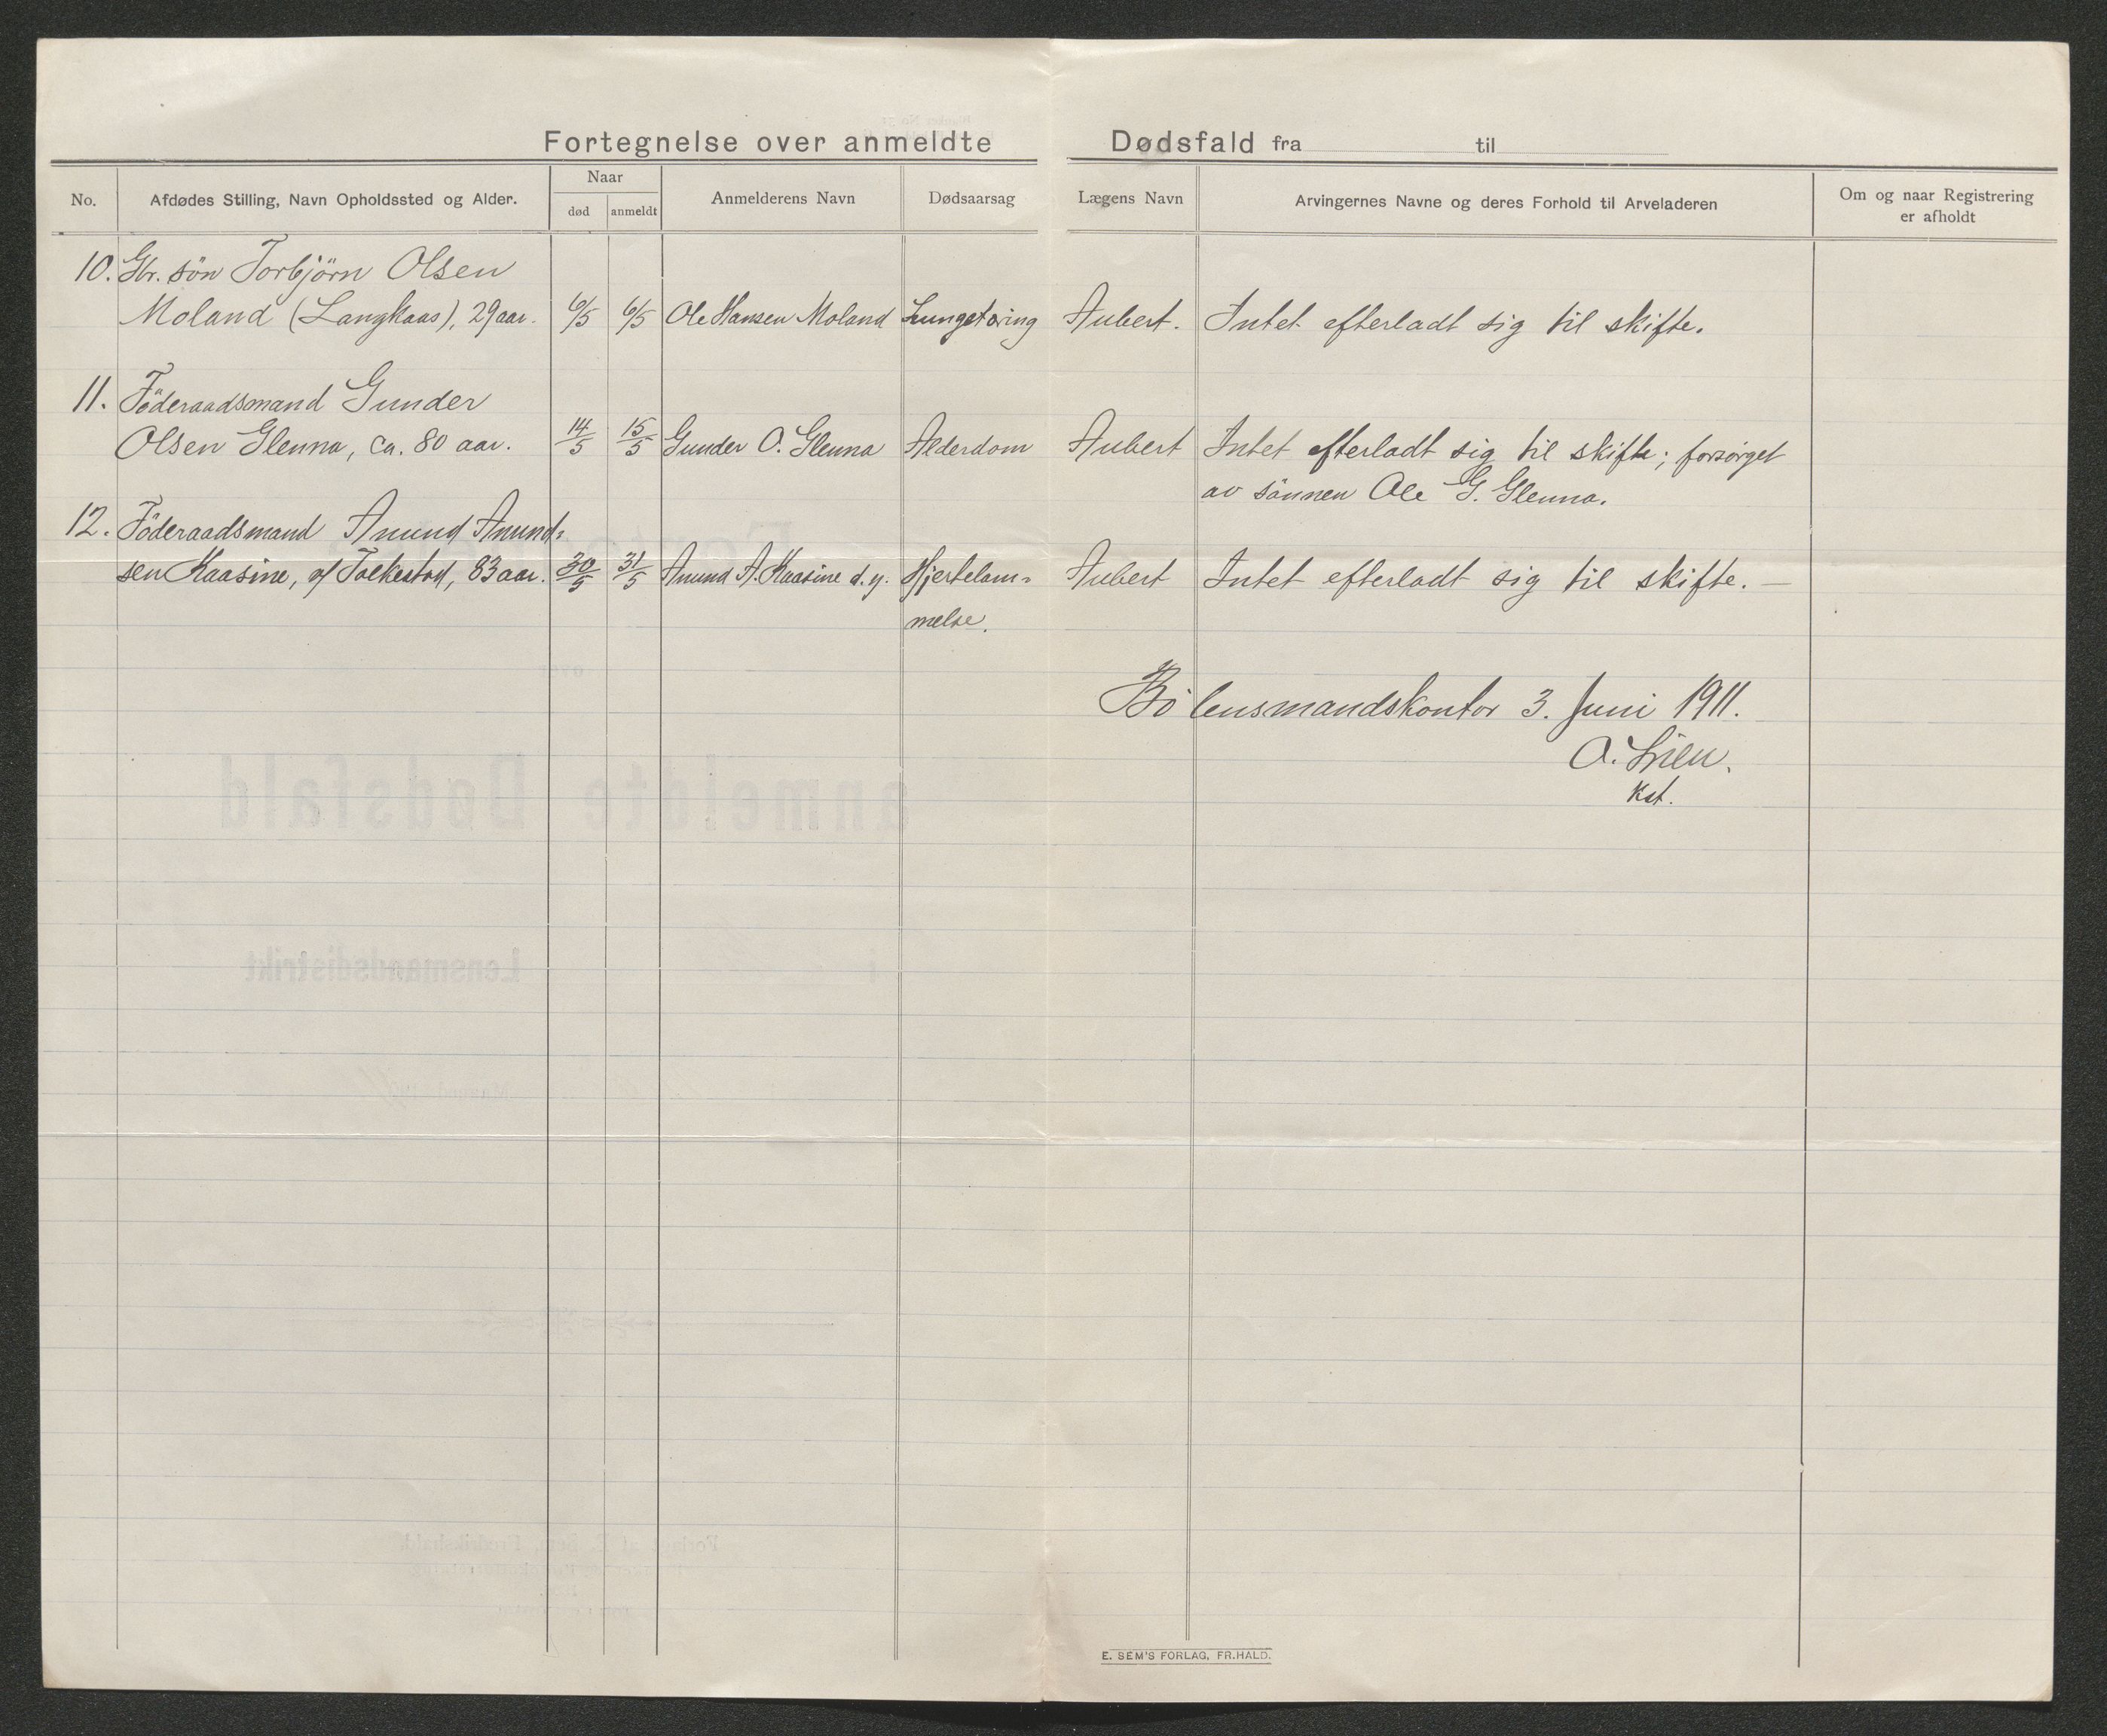 Fortegnelse over anmeldte Dødsfald fra til
No.
Afdødes Stilling, Navn Opholdssted og Alder.
Naar
død anmeldt
Anmelderens Navn
Dødsaarsag
Lægens Navn
Arvingernes Navne og deres Forhold til Arveladeren
Om og naar Registrering
er afholdt
10. Gbr. søn Torbjörn Olsen
Moland (Langkaas), 29 aar. 6/5 6/5 Ole Hansen Moland Lungetæring Aubert. Intet efterladt sig til skifte.
11. Föderaadsmand Gunder
Olsen Glenna, ca. 80 aar. 14/5 15/5 Gunder O. Glenna Alderdom Aubert Intet efterladt sig til skifte; forsørget
av sønnen Ole G. Glenna.
12. Föderaadsmand Anund Anund=
sen Kaasine, af Folkestad, 83 aar. 30/5 31/5 Anund A. Kaasine d. y. Hjertelam= Aubert Intet efterladt sig til skifte. —
melse.
Bö lensmandskontor 3. Juni 1911.
O. Lien.
Kst.
E. SEM'S FORLAG, FR.HALD.